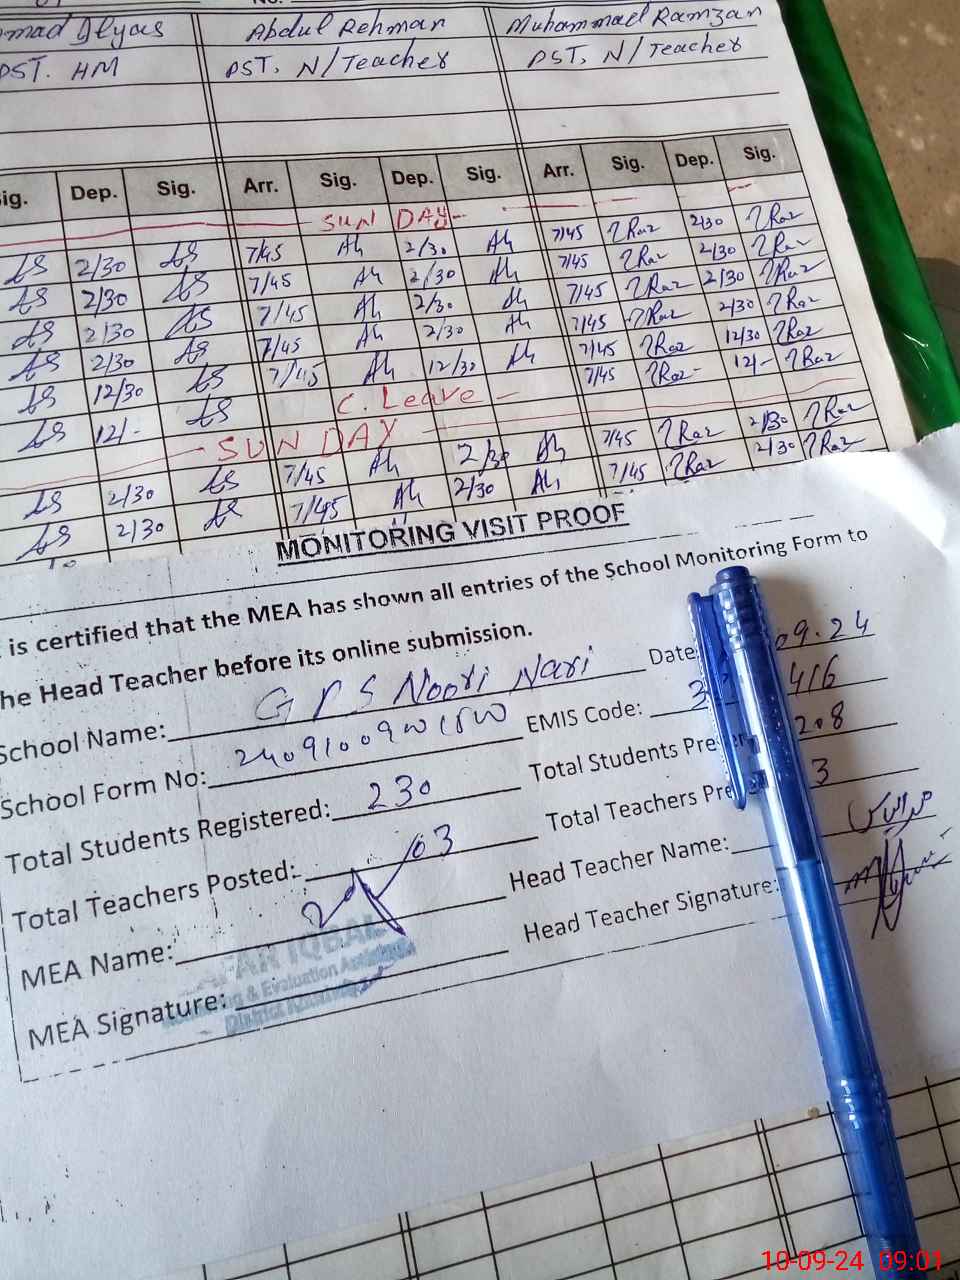 mad Ilyas Abdul Rehman Muhammad Ramzan
PST. HM PST, N/Teacher PST, N/Teacher
Sig. Dep. Sig. Arr. Sig. Dep. Sig. Arr. Sig. Dep. Sig.
SUN DAY
2/30 7/45 Ah 2/30 Ah 7/45 Raz 2/30 Raz
2/30 7/45 Ah 2/30 Ah 7/45 Raz 2/30 Raz
2/30 7/45 Ah 2/30 Ah 7/45 Raz 2/30 Raz
2/30 7/45 Ah 2/30 Ah 7/45 Raz 2/30 Raz
12/30 7/45 Ah 12/30 Ah 7/45 Raz 12/30 Raz
12/- C. Leave - 7/45 Raz 12/- Raz
SUN DAY
2/30 7/45 Ah 2/30 Ah 7/45 Raz 2/30 Raz
2/30 7/45 Ah 2/30 Ah 7/45 Raz 2/30 Raz
MONITORING VISIT PROOF
is certified that the MEA has shown all entries of the School Monitoring Form to
he Head Teacher before its online submission.
School Name: GPS Noori Nari Date 09.24
School Form No: EMIS Code: 3 416
Total Students Registered: 230 Total Students Presen 208
Total Teachers Posted: 03 Total Teachers Pre 3
MEA Name: Head Teacher Name:
MEA Signature: Head Teacher Signature:
AR IQBAL
& Evaluation Assistant
District
10-09-24 09:01